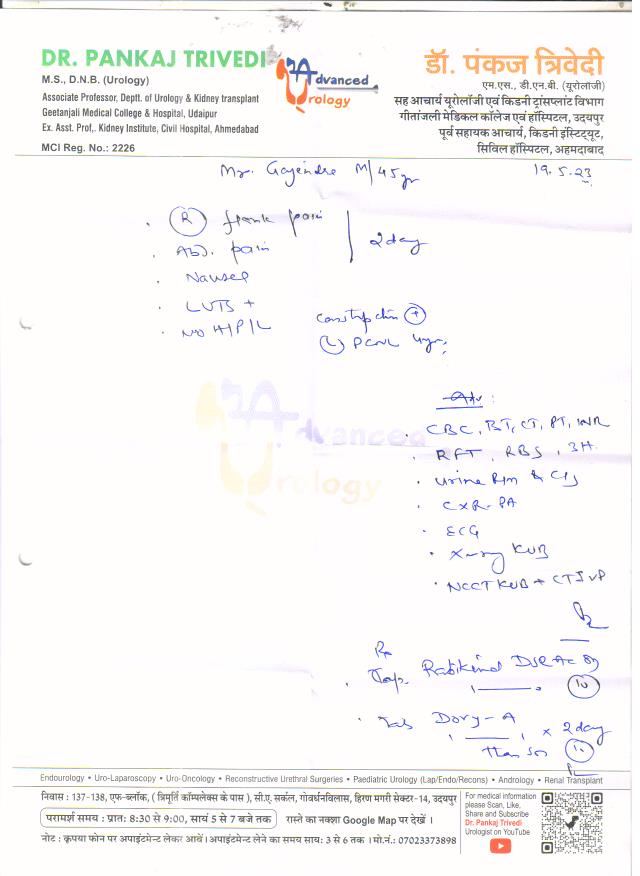 DR. PANKAJ TRIVEDI
M.S., D.N.B. (Urology)
Associate Professor, Deptt. of Urology & Kidney transplant
Geetanjali Medical College & Hospital, Udaipur
Ex. Asst. Prof,. Kidney Institute, Civil Hospital, Ahmedabad
MCI Reg. No.: 2226
Advanced
Urology
डॉ. पंकज त्रिवेदी
एम.एस., डी.एन.बी. (यूरोलॉजी)
सह आचार्य यूरोलॉजी एवं किडनी ट्रांसप्लांट विभाग
गीतांजली मेडिकल कॉलेज एवं हॉस्पिटल, उदयपुर
पूर्व सहायक आचार्य, किडनी इंस्टिट्यूट,
सिविल हॉस्पिटल, अहमदाबाद
Mr. Gajendra M/45yr
19.5.23
. (R) flank pain
. Abd. pain
2day
. Nausea
. LUTS +
. No H/P/L
constipation (+)
(L) PCNL 4yr,
Adv :
. CBC, BT, CT, PT, INR
. RFT, RBS, 3H
. Urine R/m & C/s
. CXR-PA
. ECG
. X-ray KUB
. NCCT KUB + CT IVP
Advanced
Urology
Rx
. Cap. Rabikind DSR AC OD
(10)
. Tab Dory-A
x 2day
than SOS (10)
Endourology • Uro-Laparoscopy • Uro-Oncology • Reconstructive Urethral Surgeries • Paediatric Urology (Lap/Endo/Recons) • Andrology • Renal Transplant
निवास : 137-138, एफ-ब्लॉक, ( त्रिमूर्ति कॉम्पलेक्स के पास ), सी.ए. सर्कल, गोवर्धनविलास, हिरण मगरी सेक्टर-14, उदयपुर
परामर्श समय : प्रात: 8:30 से 9:00, सायं 5 से 7 बजे तक रास्ते का नक्शा Google Map पर देखें ।
नोट : कृपया फोन पर अपाइंटमेन्ट लेकर आवें । अपाइंटमेन्ट लेने का समय सायं: 3 से 6 तक । मो.नं.: 07023373898
For medical information
please Scan, Like,
Share and Subscribe
Dr. Pankaj Trivedi
Urologist on YouTube